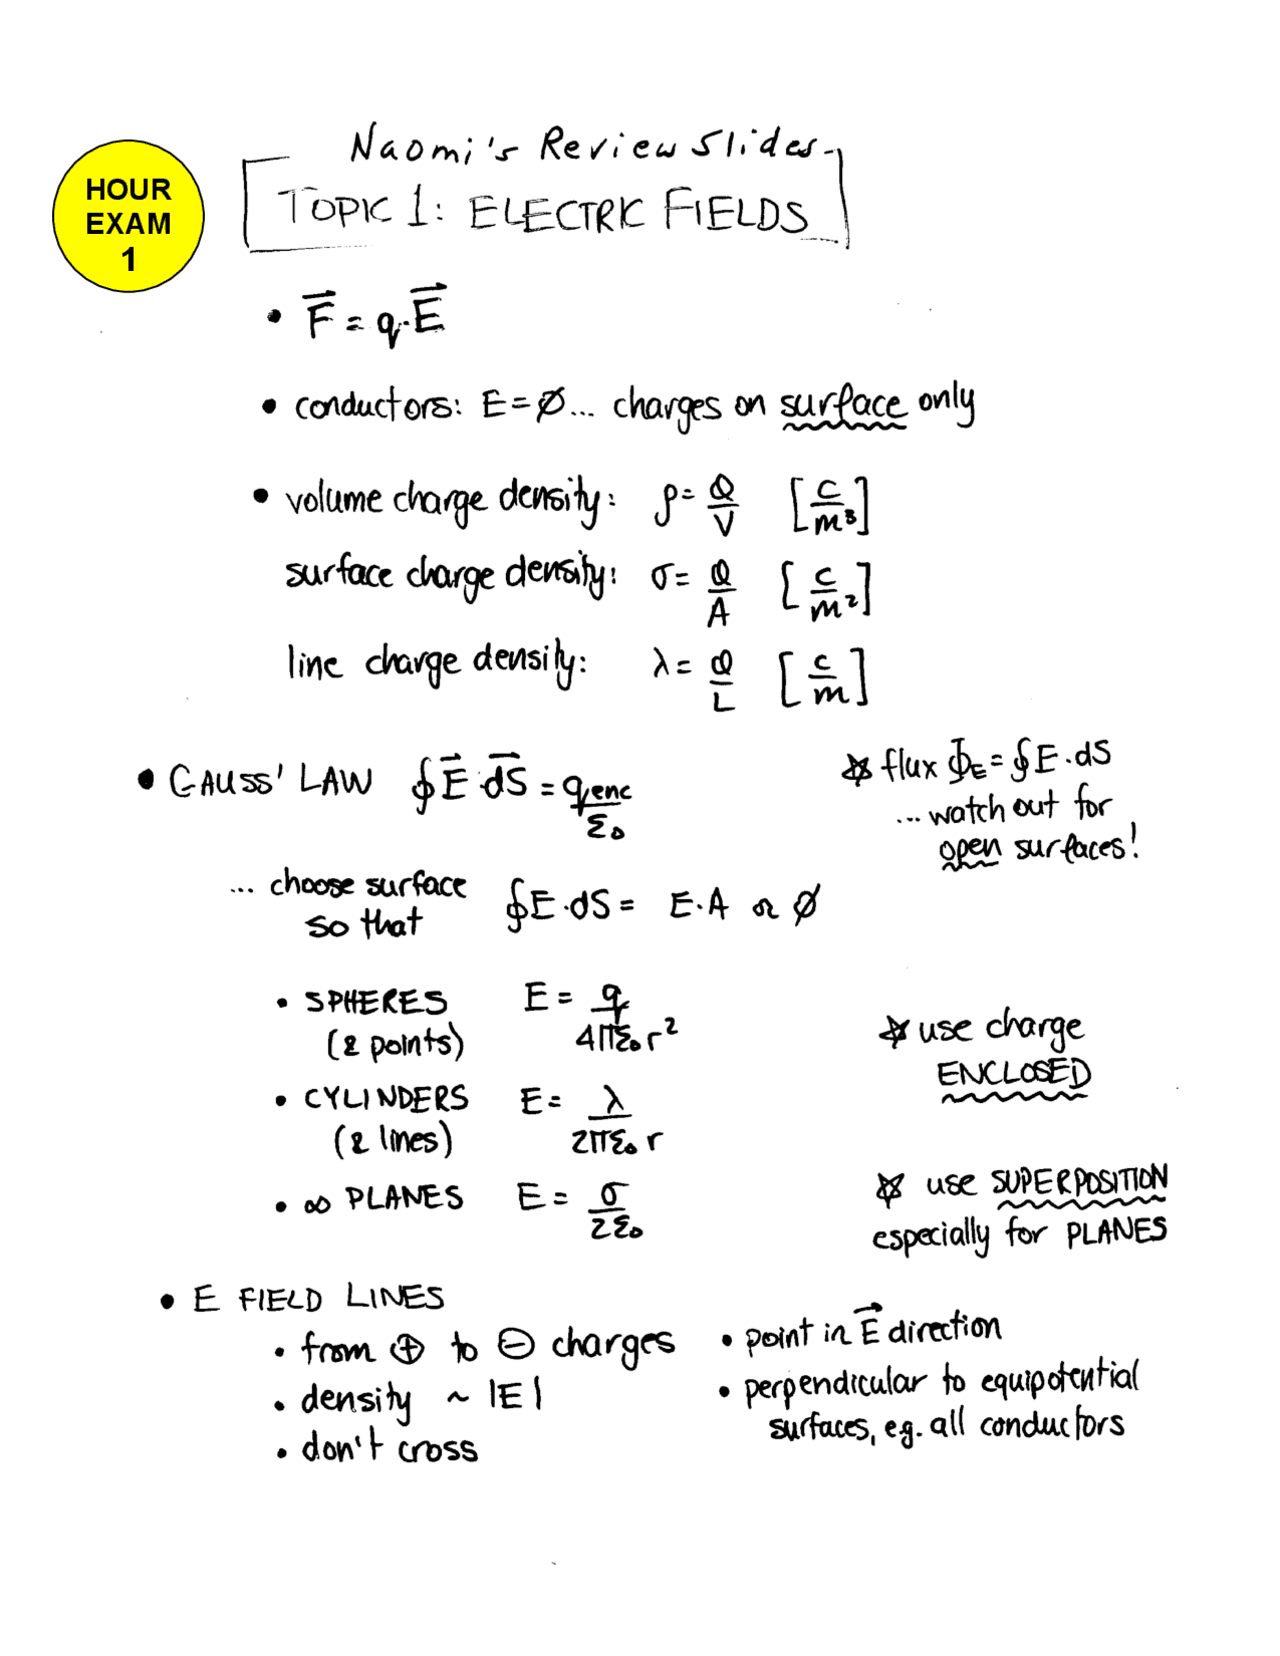 Naomi's Review Slides
HOUR
EXAM
1
TOPIC 1: ELECTRIC FIELDS
• F⃗ = q·E⃗
• conductors: E = ∅... charges on surface only
• volume charge density: ρ = Q/V [C/m³]
surface charge density: σ = Q/A [C/m²]
line charge density: λ = Q/L [C/m]
• GAUSS' LAW ∮E⃗·dS⃗ = qenc/ε₀
☆ flux Φ_E = ∮E·dS
... watch out for
open surfaces!
... choose surface
so that ∮E·dS = E·A or ∅
• SPHERES E = q/4πε₀r²
(& points)
☆ use charge
ENCLOSED
• CYLINDERS E = λ/2πε₀r
(& lines)
• ∞ PLANES E = σ/2ε₀
☆ use SUPERPOSITION
especially for PLANES
• E FIELD LINES
• from ⊕ to ⊖ charges
• density ~ |E|
• don't cross
• point in E⃗ direction
• perpendicular to equipotential
surfaces, e.g. all conductors